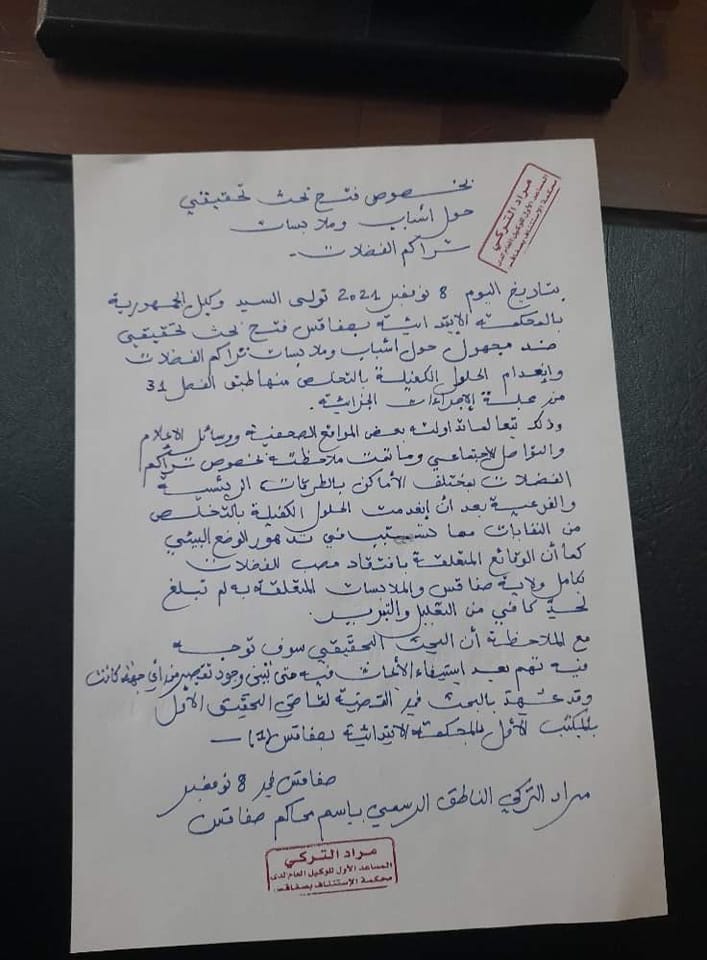 مراد التركي
المساعد الأول للوكيل العام لدى
محكمة الإستئناف بصفاقس
بخصوص فتح بحث تحقيقي
حول اسباب وملابسات
تراكم الفضلات.
بتاريخ اليوم 8 نوفمبر 2021 تولى السيد وكيل الجمهورية
بالمحكمة الابتدائية بصفاقس فتح بحث تحقيقي
ضد مجهول حول اسباب وملابسات تراكم الفضلات
وإنعدام الحلول الكفيلة بالتخلص منها طبق الفصل 31
من مجلة الإجراءات الجزائية.
وذلك تبعا لما تداولته بعض المواقع الصحفية ووسائل الاعلام
والتواصل الاجتماعي وما تمت ملاحظته بخصوص تراكم
الفضلات بمختلف الأماكن بالطرقات الرئيسية
والفرعية بعد أن إنعدمت الحلول الكفيلة بالتخلص
من النفايات مما تسبب في تدهور الوضع البيئي
كما أن الوقائع المتعلقة بافتقاد مصب للفضلات
بكامل ولاية صفاقس والملابسات المتعلقة به لم تبلغ
لحد كافي من التعليل والتبرير.
مع الملاحظة أن البحث التحقيقي سوف توجه
فيه تهم بعد استيفاء الأبحاث فيه متى تبين وجود تقصير من أي جهة كانت
وقد عهد بالبحث في القضية لقاضي التحقيق الأول
بالمكتب الأول بالمحكمة الابتدائية بصفاقس (1) —
صفاقس في 8 نوفمبر
مراد التركي الناطق الرسمي باسم محاكم صفاقس
مراد التركي
المساعد الأول للوكيل العام لدى
محكمة الإستئناف بصفاقس